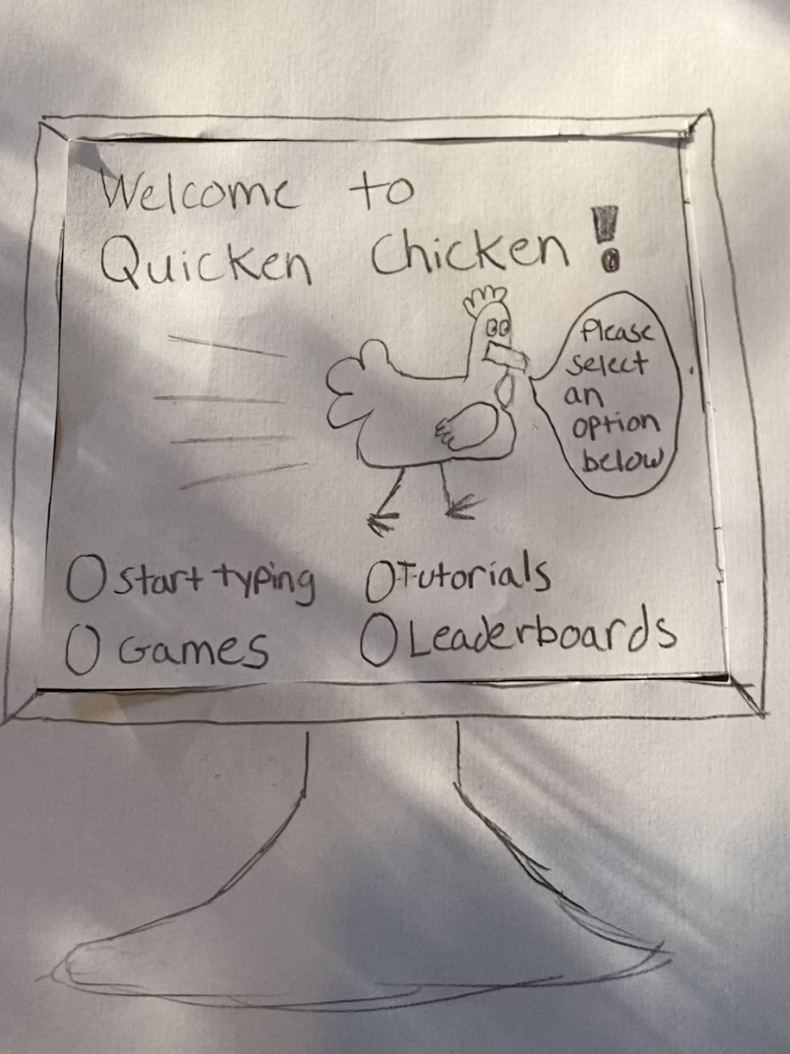 Welcome to
Quicken Chicken!
Please
select
an
option
below
Start typing
Tutorials
Games
Leaderboards